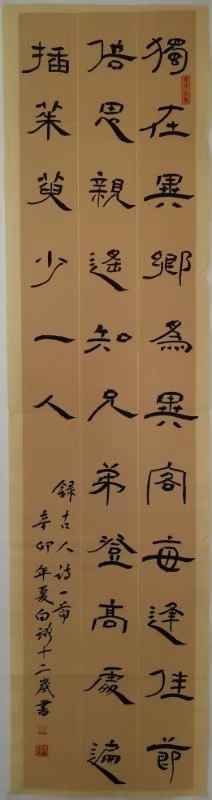 獨在異鄉為異客每逢佳節
倍思親遙知兄弟登高處遍
插茱萸少一人
錄古人詩一首
辛卯年夏白 十二歲書